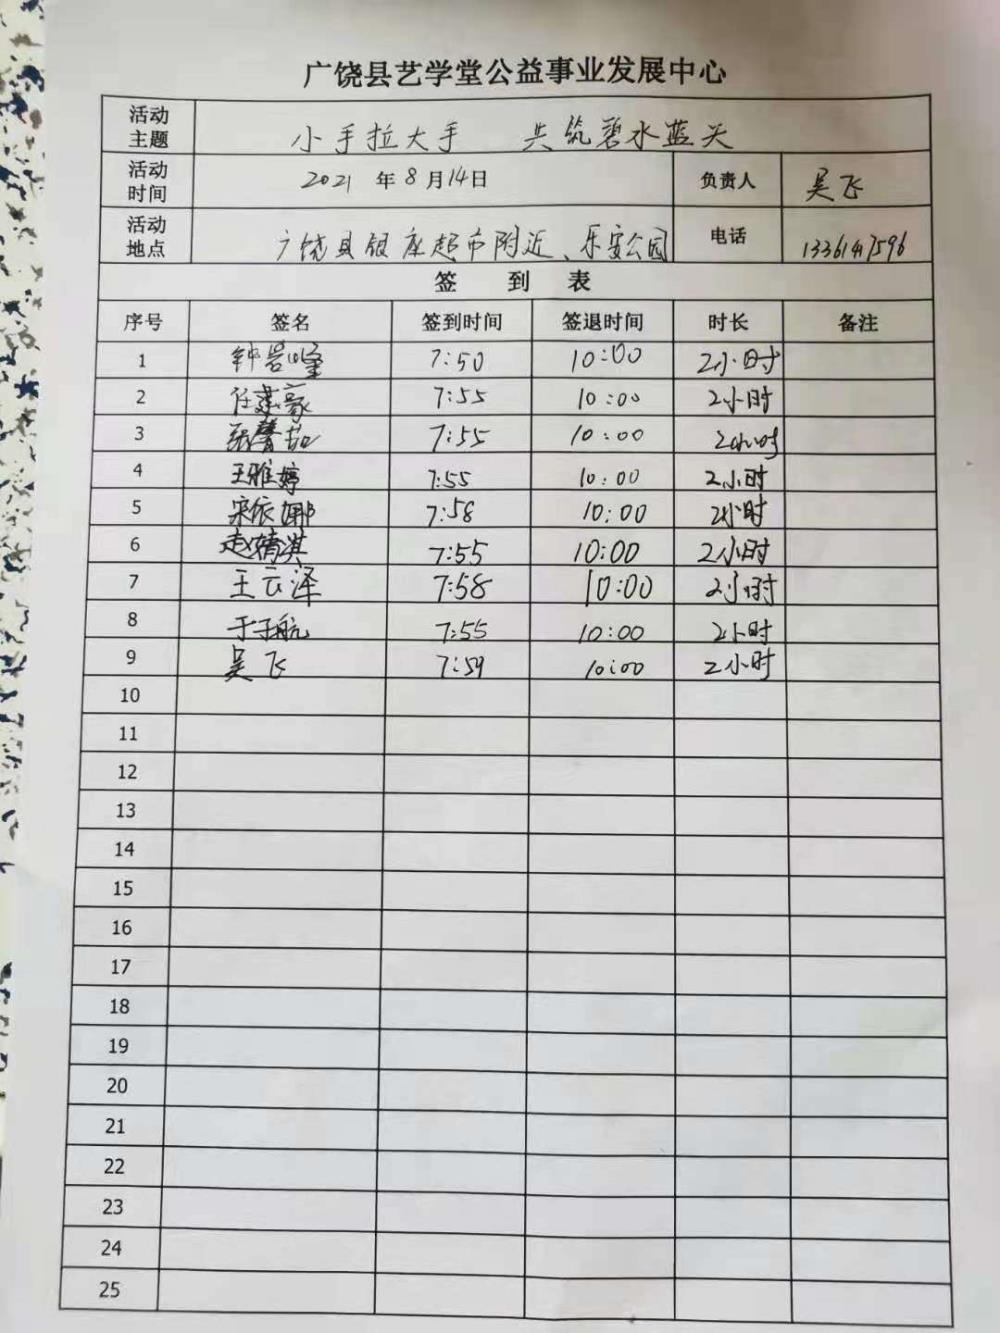 广饶县艺学堂公益事业发展中心
活动主题 小手拉大手 共筑碧水蓝天
活动时间 2021 年 8 月 14 日 负责人 吴飞
活动地点 广饶县银座超市附近、乐安公园 电话
签 到 表
序号 签名 签到时间 签退时间 时长 备注
1 7:50 10:00 2小时
2 7:55 10:00 2小时
3 7:55 10:00 2小时
4 王雅婷 7:55 10:00 2小时
5 宋依娜 7:58 10:00 2小时
6 赵婧淇 7:55 10:00 2小时
7 王云泽 7:58 10:00 2小时
8 于子航 7:55 10:00 2小时
9 吴飞 7:59 10:00 2小时
10
11
12
13
14
15
16
17
18
19
20
21
22
23
24
25